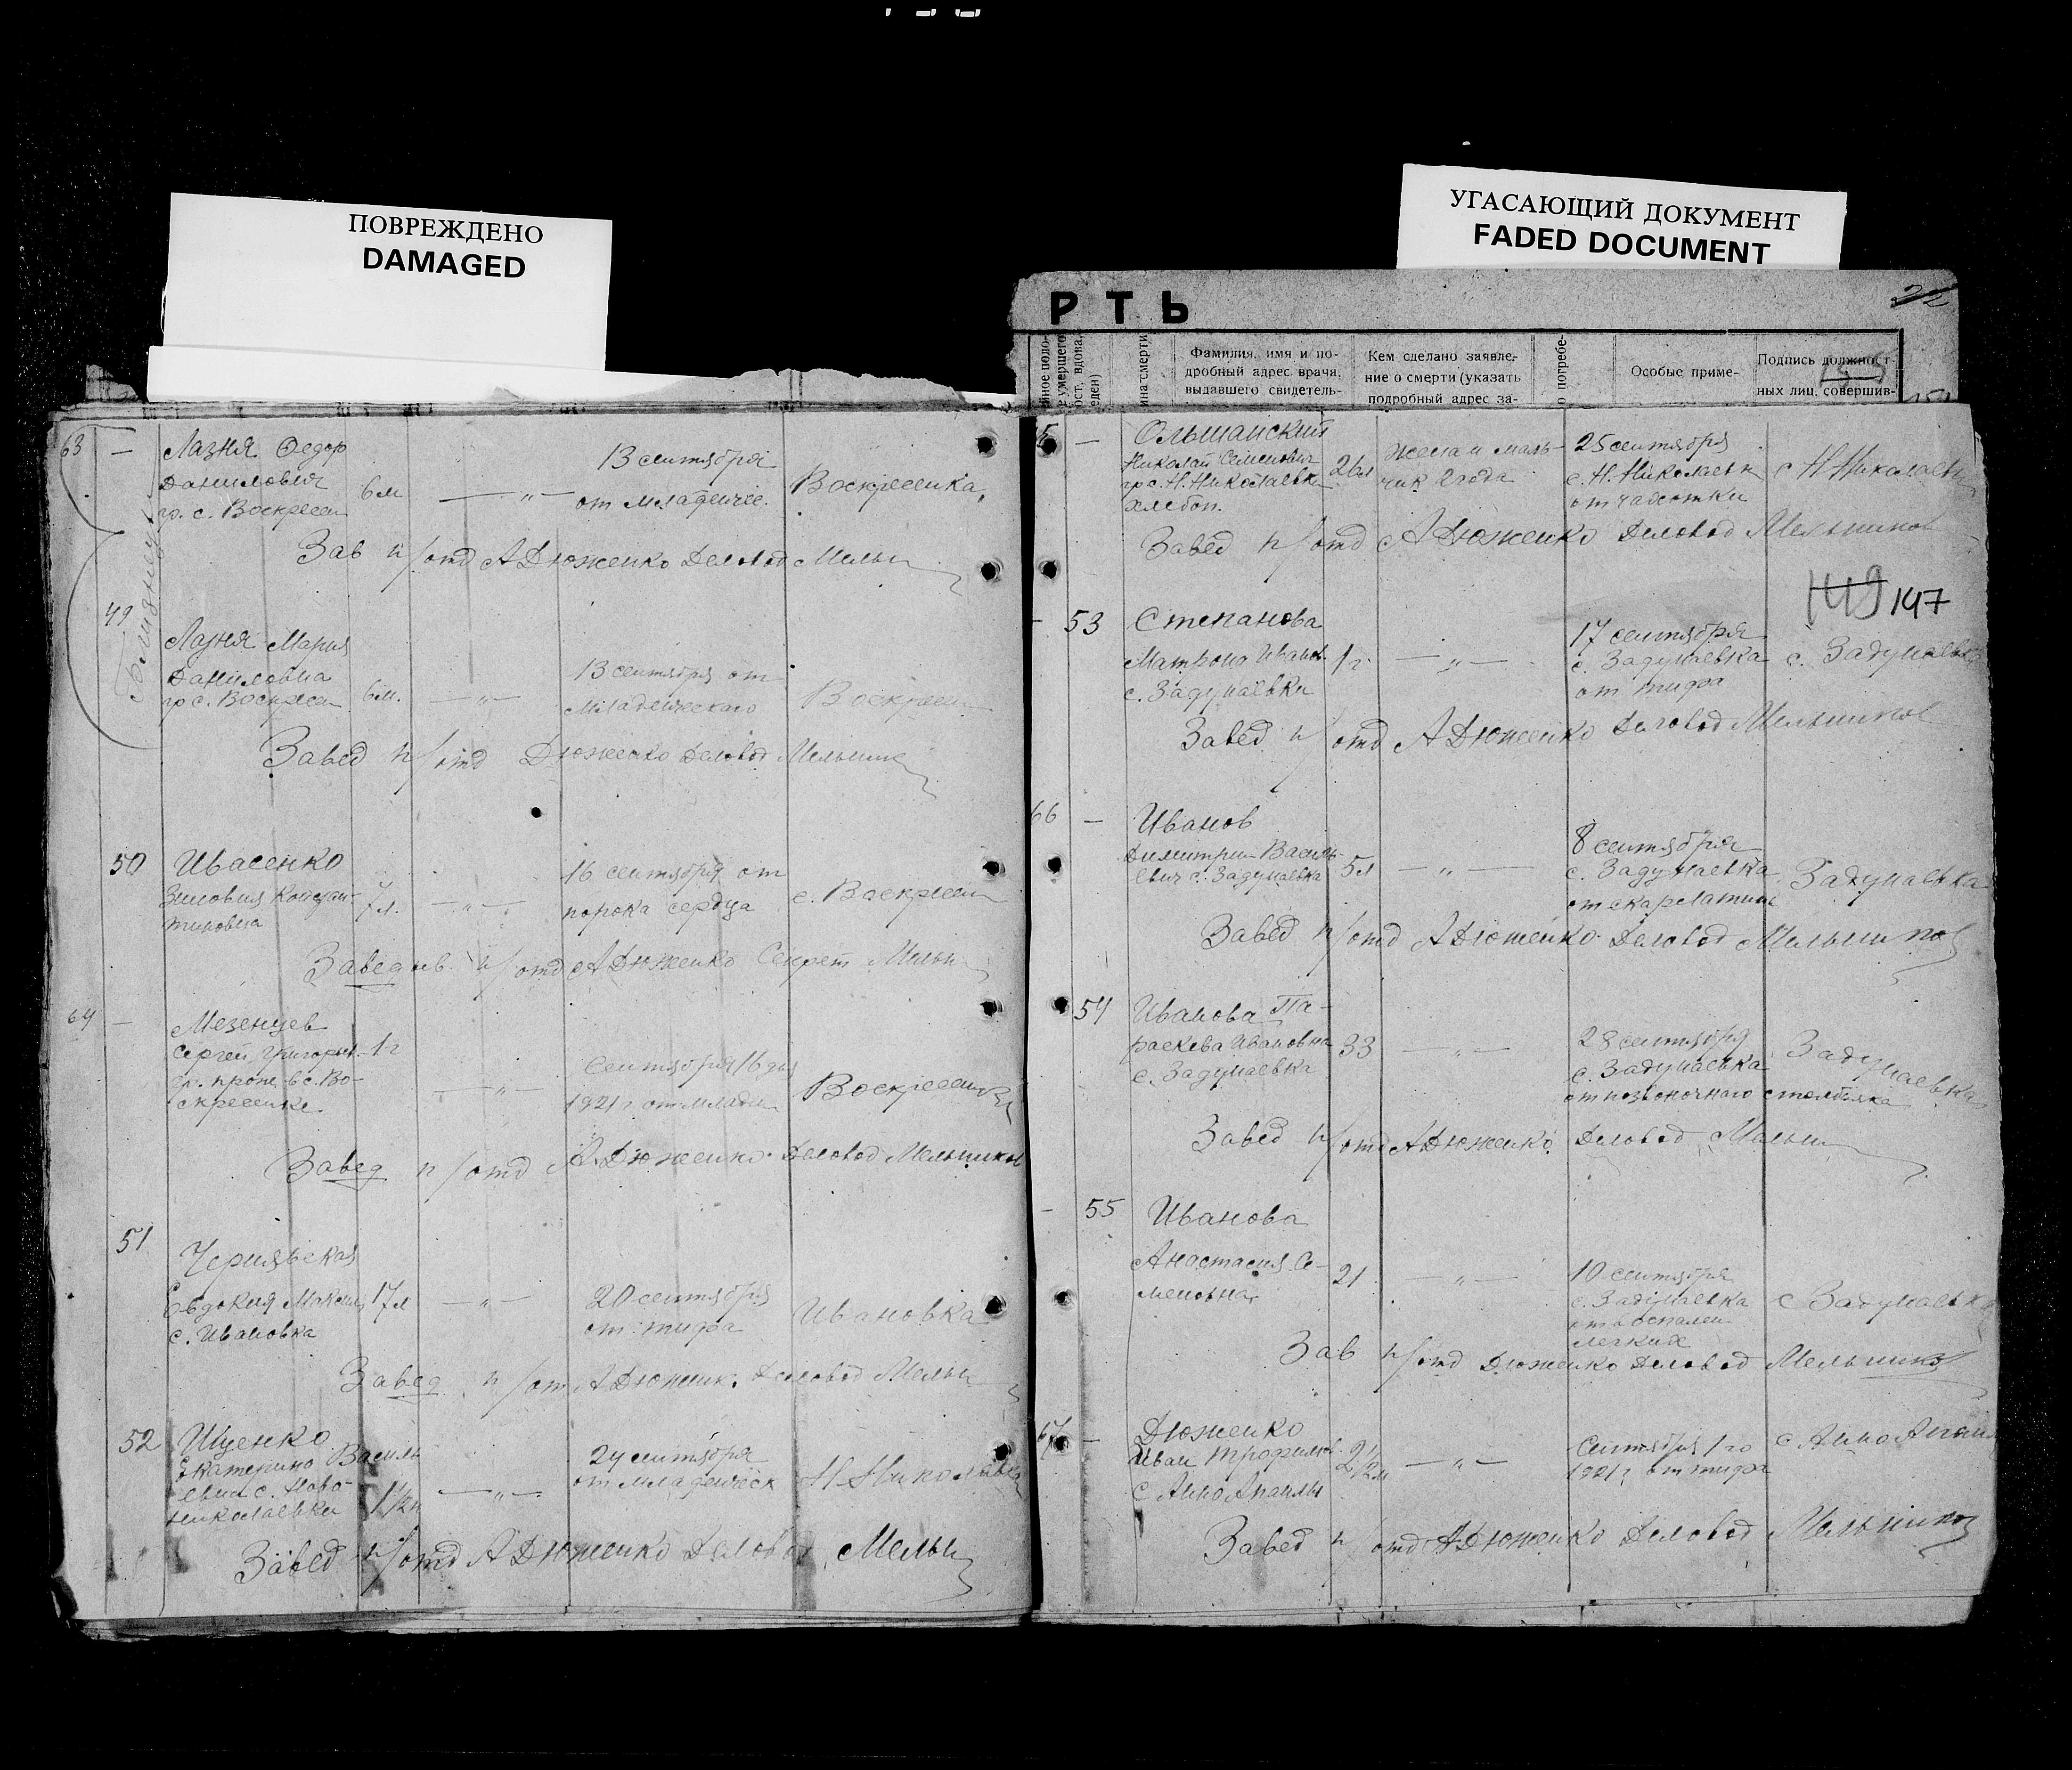 ПОВРЕЖДЕНО
DAMAGED
УГАСАЮЩИЙ ДОКУМЕНТ
FADED DOCUMENT
Р Т Ь
22
Фамилия, имя и по-
дробный адрес врача,
выдавшего свидетель-
Кем сделано заявле-
ние о смерти (указать
подробный адрес за-
о погребе-
Особые приме-
Подпись должност-
ных лиц, совершив-
63 —
Лазня Федор
Данилович
гр. с. Воскресен
6м
— „ —
13 сентября
от младенчес.
Воскресенка,
Зав п/отд АДюженко Деловод Мельн
Близнецы
49
Лазня Мария
Даниловна
гр с. Воскресен
6м.
— „ —
13 сентября от
младенческаго
Воскресен
Завед п/отд Дюженко Деловод Мельник
50
Ивасенко
Зиновия Констан-
тиновна
7л.
— „ —
16 сентября от
порока сердца
с. Воскресен
Заведыв. п/отд АДюженко Секрет Мельн
64 —
Мезенцев
Сергей Григорьев.
гр. прож. в с. Во-
скресенке
1г
— „ —
Сентября 16 дня
1921 г от младен
Воскресенка
Завед п/отд А.Дюженко Деловод Мельников
51
Чернявская
Евдокия Максим
с. Ивановка
17л
— „ —
20 сентября
от тифа
Ивановка
Завед п/отд АДюженк. Деловод Мельн
52
Ищенко
Екатерина Василь
евна с. Ново-
николаевки
1 1/2
— „ —
24 сентября
от младенческ
Н Николаевка
Завед п/отд АДюженко Деловод Мельн
—
Ольшанский
Николай Семенович
гр с. Н. Николаевк
хлебоп.
26л
Жена и маль-
чик 2 года
25 сентября
с. Н. Николаевк
от чахотки
с Н Николаевк
Завед п/отд АДюженко Деловод Мельников
149 147
— 53
Степанова
Матрона Иванов.
с. Задунаевки
1г.
— „ —
17 сентября
с. Задунаевка
от тифа
с. Задунаевка
Завед п/отд АДюженко Деловод Мельников
66 —
Иванов
Димитрий Василь-
евич с. Задунаевка
5л
— „ —
8 сентября
с. Задунаевка
от скарлатины
Задунаевка
Завед п/отд АДюженко Деловод Мельников
54
Иванова Па-
раскева Ивановна
с. Задунаевка
33
— „ —
28 сентября
с. Задунаевка
от позвоночного столбняка
Задунаевка
Завед п/отд АДюженко Деловод Мельн
— 55
Иванова
Анастасия Се-
меновна
21
— „ —
10 сентября
с. Задунаевка
от воспален
легких
с Задунаевка
Зав п/отд Дюженко Деловод Мельников
67 —
Дюженко
Иван Трофимов.
с Анно
2 1/2
— „ —
Сентября 1го
1921 г от тифа
с Анно
Завед п/отд АДюженко Деловод Мельников